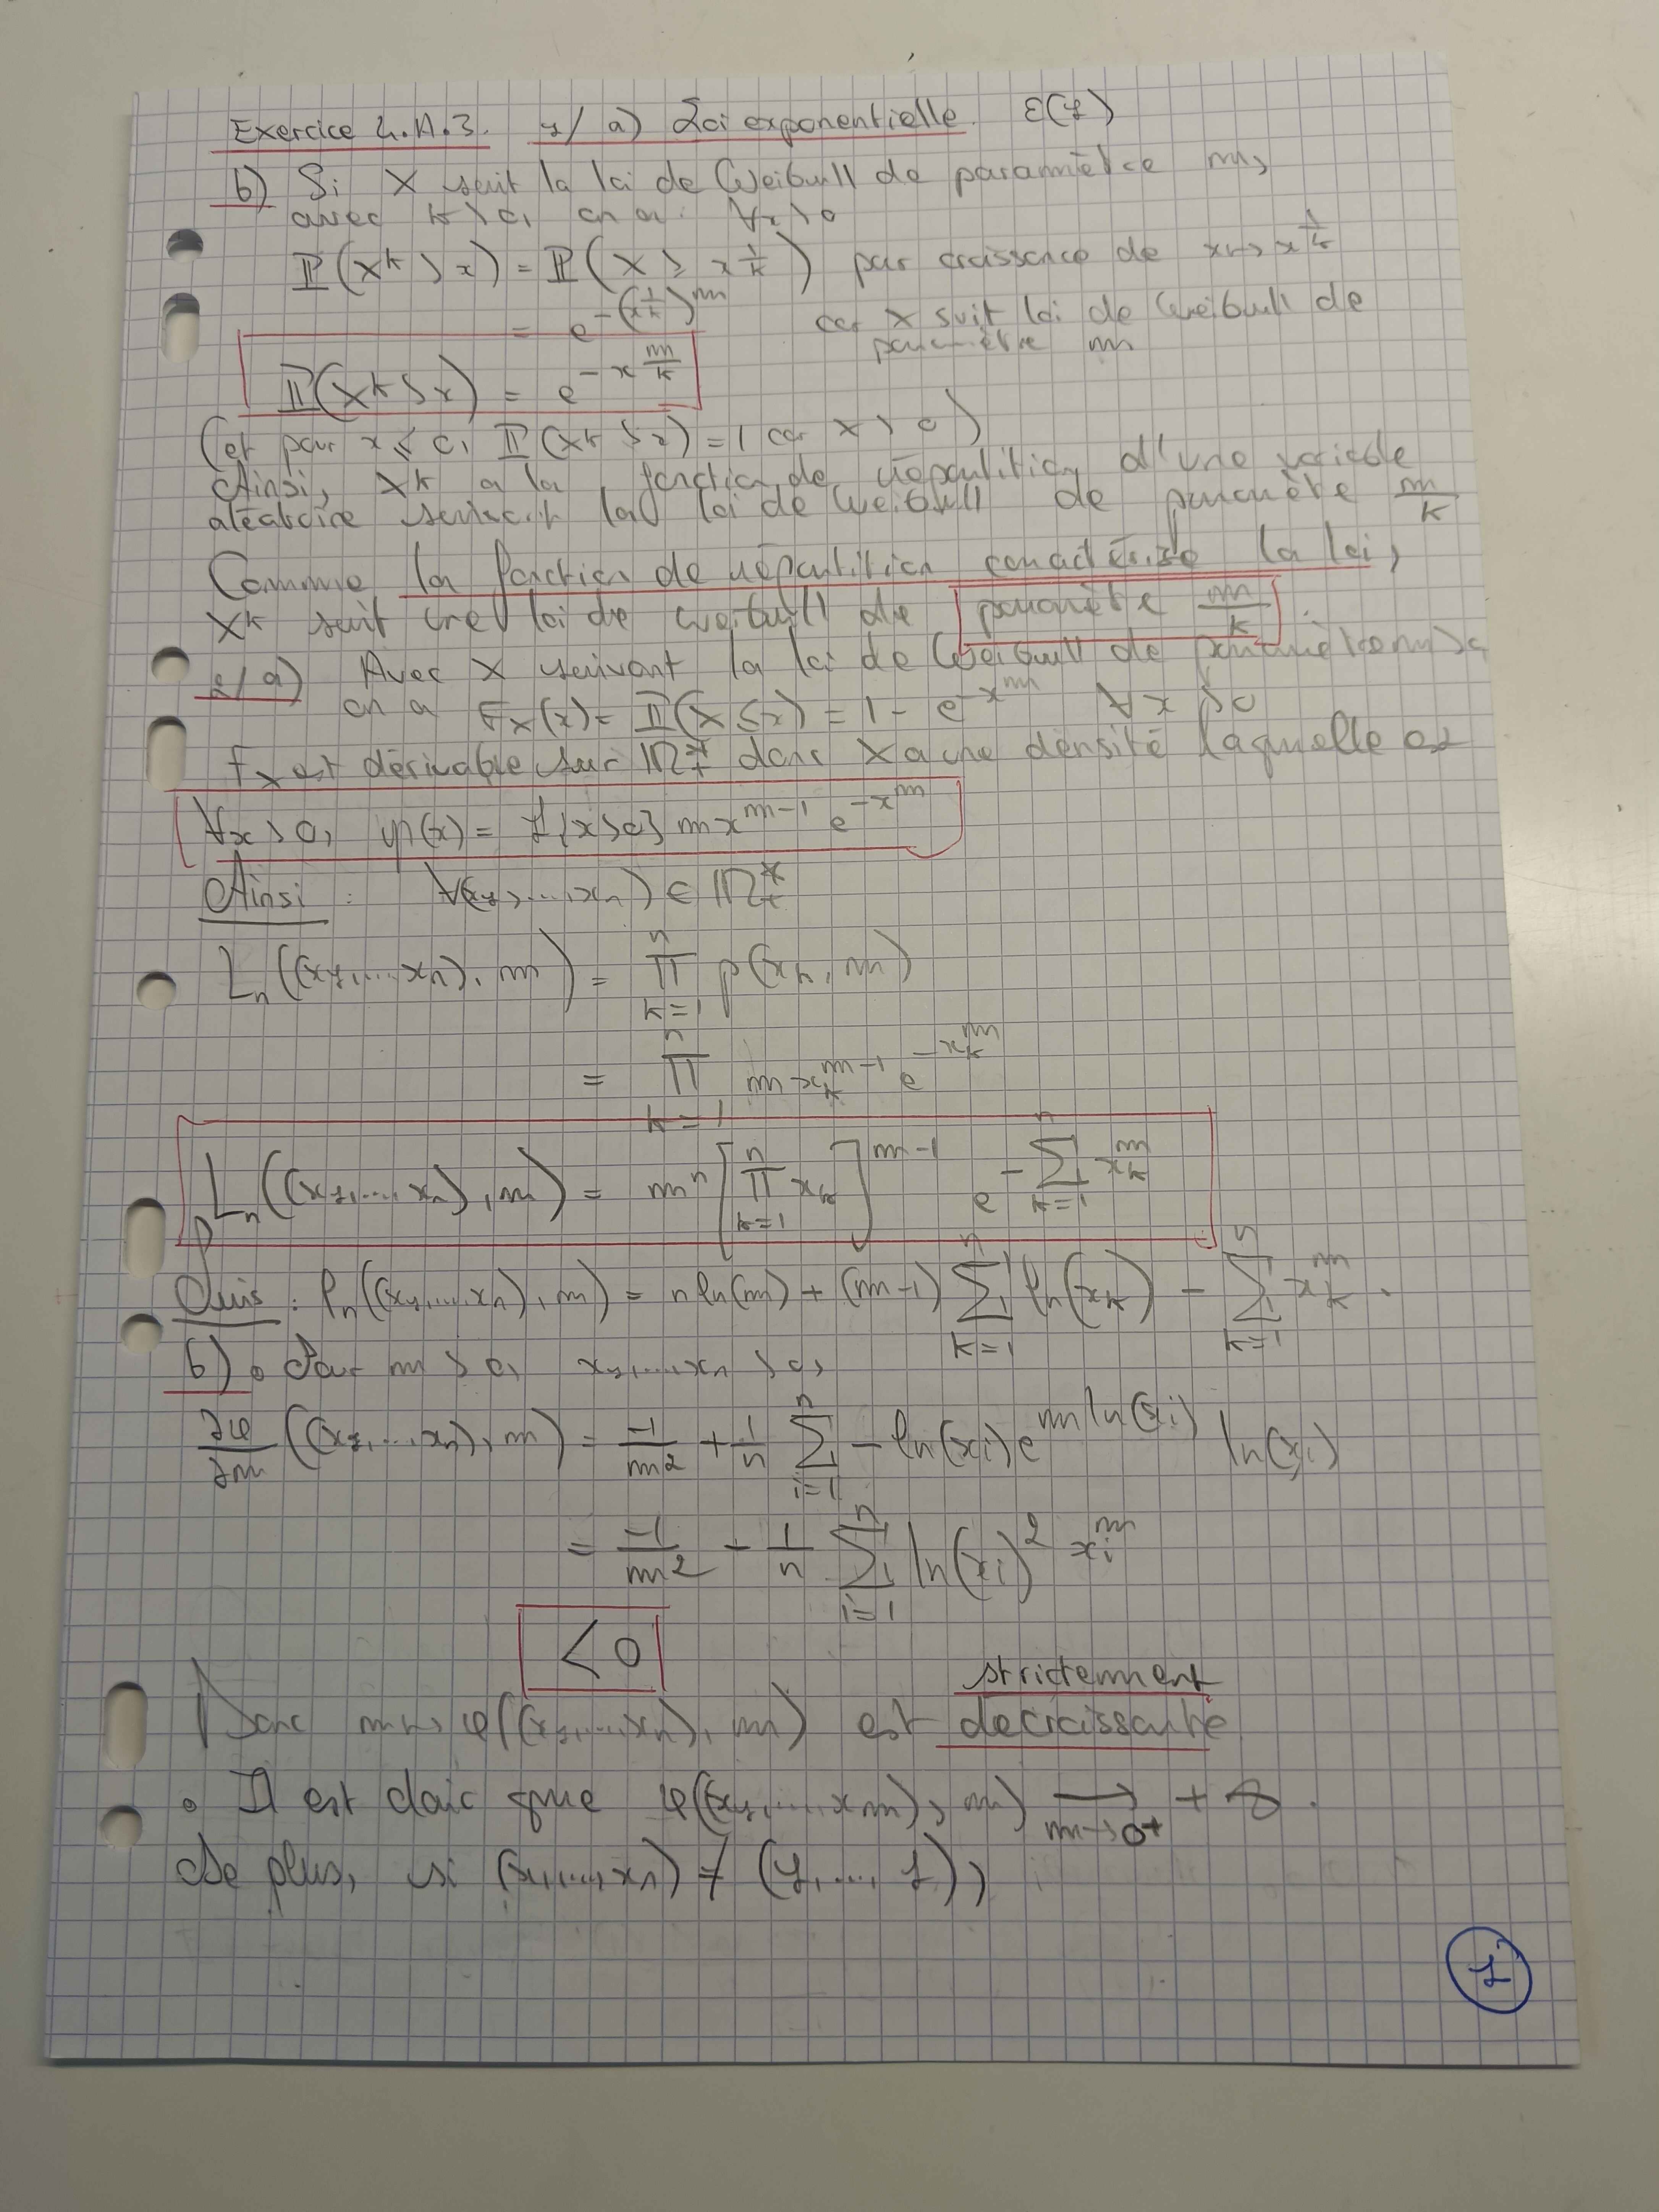 Exercice 4.A.3. 1/ a) Loi exponentielle. Ɛ(1)
b) Si X suit la loi de Weibull de paramètre m,
avec k > 0, on a : ∀x > 0
ℙ(X^k > x) = ℙ(X ≥ x^{1/k}) par croissance de x ↦ x^{1/k}
= e^{-(x^{1/k})^m} car X suit loi de Weibull de
paramètre m
ℙ(X^k > x) = e^{-x^{m/k}}
(et pour x ≤ 0, ℙ(X^k > x) = 1 car X > 0)
Ainsi, X^k a la fonction de répartition d'une variable
aléatoire suivant la loi de Weibull de paramètre m/k
Comme la fonction de répartition caractérise la loi,
X^k suit une loi de Weibull de paramètre m/k.
2/ a) Avec X suivant la loi de Weibull de paramètre m > 0
on a F_X(x) = ℙ(X ≤ x) = 1 - e^{-x^m} ∀x > 0
F_X est dérivable sur ℝ_+^* donc X a une densité laquelle est
∀x > 0, p(x) = 1{x>0} m x^{m-1} e^{-x^m}
Ainsi : ∀(x_1, ..., x_n) ∈ ℝ_+^*
L_n((x_1, ... x_n), m) = ∏_{k=1}^{n} p(x_k, m)
= ∏_{k=1}^{n} m x_k^{m-1} e^{-x_k^m}
L_n((x_1, ..., x_n), m) = m^n [∏_{k=1}^{n} x_k]^{m-1} e^{-∑_{k=1}^{n} x_k^m}
Puis : ℓ_n((x_1, ..., x_n), m) = n ln(m) + (m-1) ∑_{k=1}^{n} ln(x_k) - ∑_{k=1}^{n} x_k^m.
b) • Pour m > 0, x_1, ..., x_n > 0,
∂φ/∂m ((x_1, ..., x_n), m) = -1/m² + 1/n ∑_{i=1}^{n} - ln(x_i) e^{m ln(x_i)} ln(x_i)
= -1/m² - 1/n ∑_{i=1}^{n} ln(x_i)² x_i^m
< 0
strictement
Donc m ↦ φ((x_1, ..., x_n), m) est décroissante
• Il est clair que φ((x_1, ..., x_m), m) ⟶_{m→0+} +∞.
De plus, si (x_1, ..., x_n) ≠ (1, ..., 1),
1